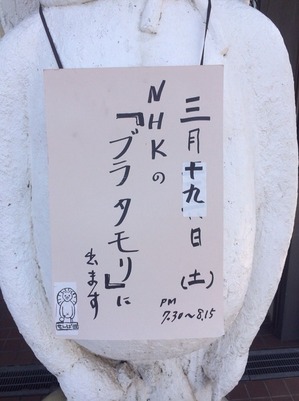 三月十九日(土)
PM
7.30〜8.15
NHKの
『ブラタモリ』に
出ます